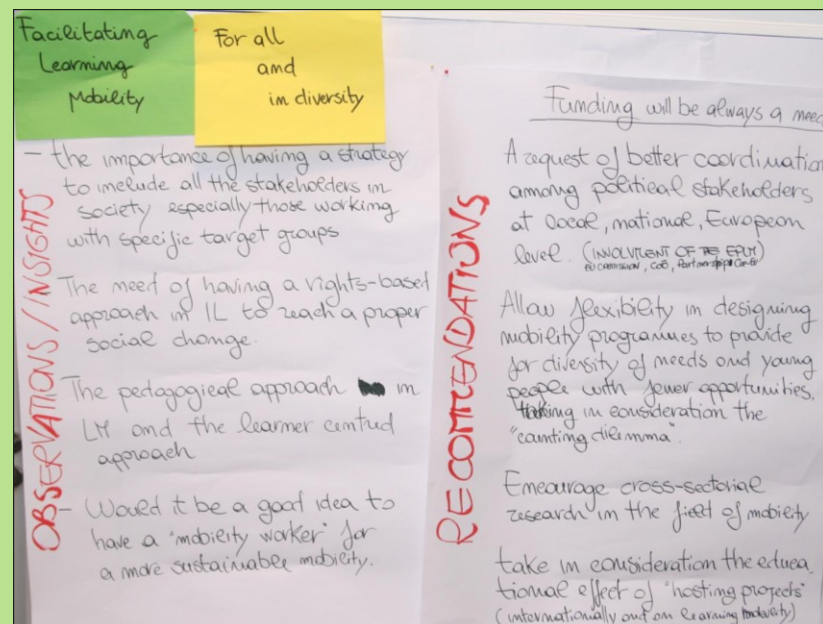 Facilitating
Learning
Mobility
For all
and
in diversity
OBSERVATIONS / INSIGHTS
- the importance of having a strategy
to include all the stakeholders in
society especially those working
with specific target groups
The need of having a rights-based
approach in IL to reach a proper
social change.
The pedagogical approach in
LM and the learner centred
approach
- Would it be a good idea to
have a "mobility worker" for
a more sustainable mobility.
RECOMMENDATIONS
Funding will be always a need
A request of better coordination
among political stakeholders
at local, national, European
level. (INVOLVMENT OF THE EPLM
EU COMMISSION, CoE, Partnership
Allow flexibility in designing
mobility programmes to provide
for diversity of needs and young
people with fewer opportunities.
taking in consideration the
"counting dilemma".
Encourage cross-sectorial
research in the field of mobility
take in consideration the educa-
tional effect of "hosting projects"
(internationally and on learning mobility)